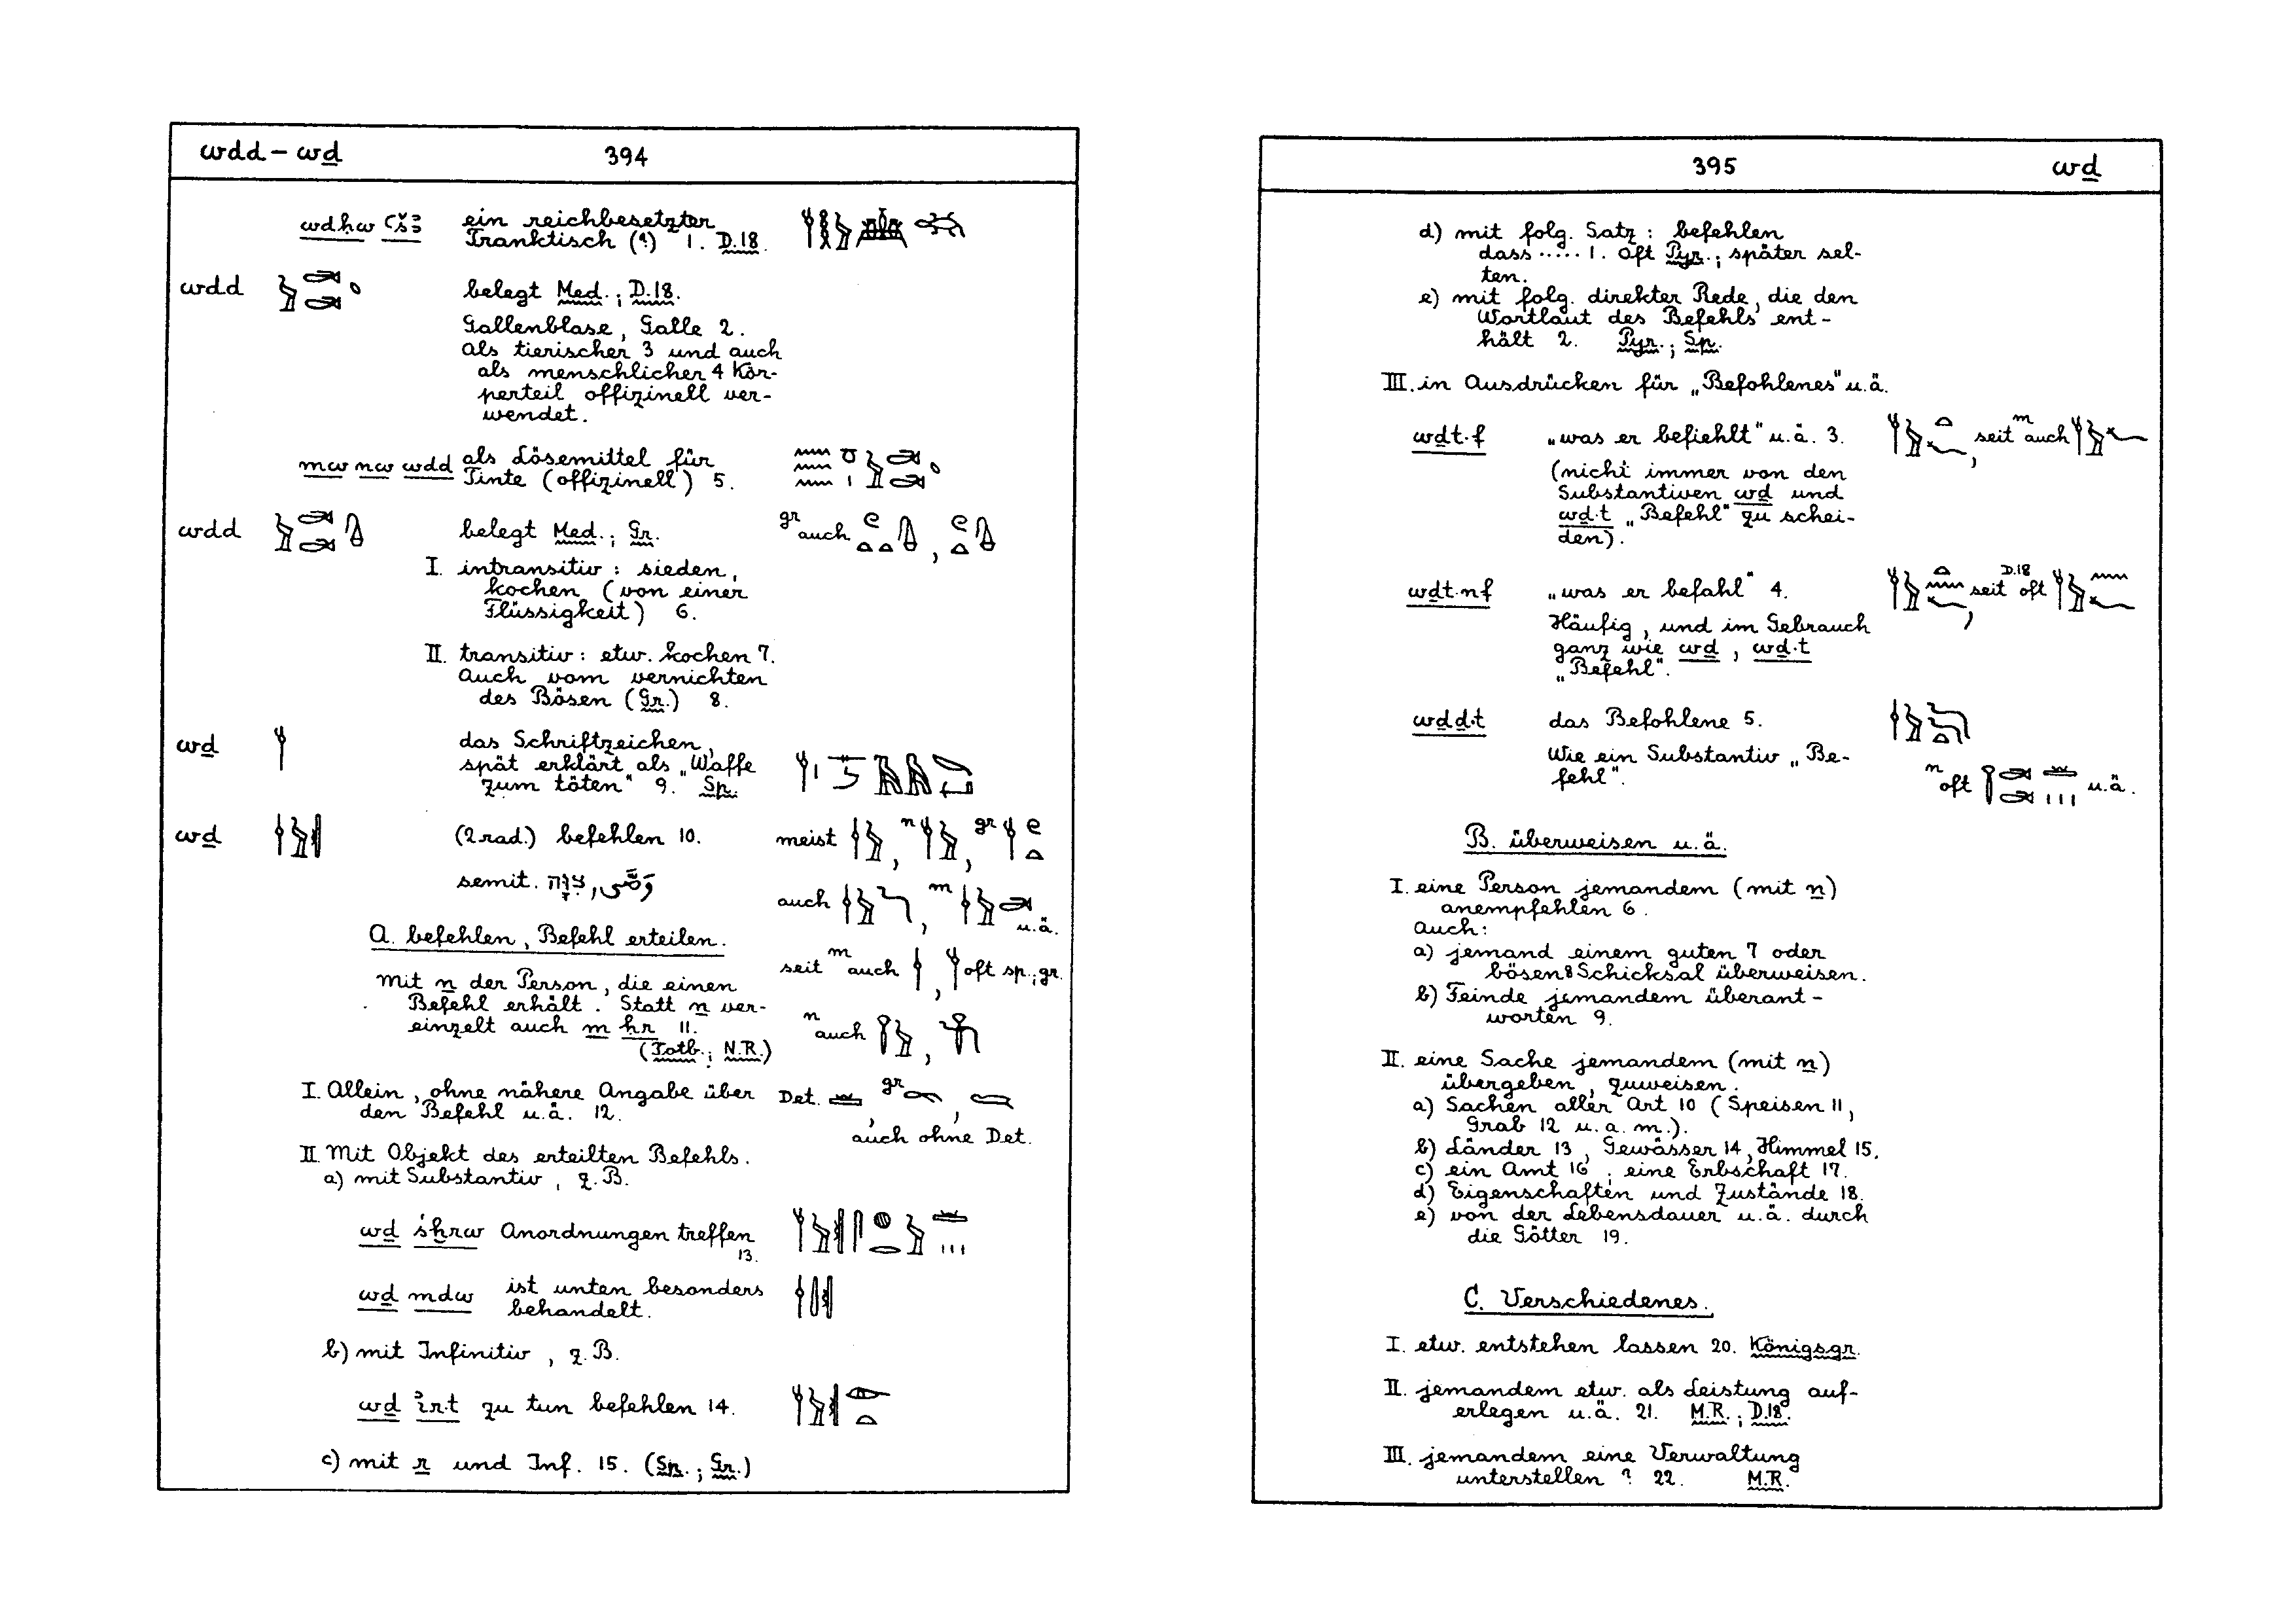 wdd – wḏ 394
wdḥw ꜥšꜣ ein reichbesetzter
Tranktisch (?) 1. D.18.
wdd belegt Med.; D.18.
Gallenblase, Galle 2.
Als tierischer 3 und auch
als menschlicher 4 Kör-
perteil offizinell ver-
wendet.
mw nw wdd als Lösemittel für
Tinte (offizinell) 5.
wdd belegt Med.; Gr. gr auch ,
I. intransitiv: sieden,
kochen (von einer
Flüssigkeit) 6.
II. transitiv: etw. kochen 7.
Auch vom vernichten
des Bösen (Gr.) 8.
wḏ das Schriftzeichen,
spät erklärt als „Waffe
zum töten“ 9. Sp.
wḏ (2rad.) befehlen 10. meist , n , gr
semit. צִוָּה, وَصَّى
auch , m u.ä.
A. befehlen, Befehl erteilen.
seit m auch , oft sp.; gr.
Mit n der Person, die einen
Befehl erhält. Statt n ver-
einzelt auch m ḥr 11.
(Totb.; N.R.)
n auch ,
I. Allein, ohne nähere Angabe über
den Befehl u.ä. 12.
Det. , gr ,
auch ohne Det.
II. Mit Objekt des erteilten Befehls.
a) mit Substantiv, z.B.
wḏ śḫrw Anordnungen treffen
13.
wḏ mdw ist unten besonders
behandelt.
b) mit Infinitiv, z.B.
wḏ ỉr.t zu tun befehlen 14.
c) mit r und Inf. 15. (Sp.; Gr.)
395 wḏ
d) mit folg. Satz: befehlen
dass ..... 1. Oft Pyr.; später sel-
ten.
e) mit folg. direkter Rede, die den
Wortlaut des Befehls ent-
hält 2. Pyr.; Sp.
III. in Ausdrücken für „Befohlenes“ u.ä.
wḏt.f „was er befiehlt“ u.ä. 3. , seit m auch
(nicht immer von den
Substantiven wḏ und
wḏ.t „Befehl“ zu schei-
den).
wḏt.nf „was er befahl“ 4. , seit D.18 oft
Häufig, und im Gebrauch
ganz wie wḏ, wḏ.t
„Befehl“.
wḏḏ.t das Befohlene 5.
Wie ein Substantiv „Be-
fehl“.
n oft u.ä.
B. überweisen u.ä.
I. eine Person jemandem (mit n)
anempfehlen 6.
Auch:
a) jemand einem guten 7 oder
bösen 8 Schicksal überweisen.
b) Feinde jemandem überant-
worten 9.
II. eine Sache jemandem (mit n)
übergeben, zuweisen.
a) Sachen aller Art 10 (Speisen 11,
Grab 12 u.a.m.).
b) Länder 13, Gewässer 14, Himmel 15.
c) ein Amt 16; eine Erbschaft 17.
d) Eigenschaften und Zustände 18.
e) von der Lebensdauer u.ä. durch
die Götter 19.
C. Verschiedenes.
I. etw. entstehen lassen 20. Königsgr.
II. jemandem etw. als Leistung auf-
erlegen u.ä. 21. M.R.; D.18.
III. jemandem eine Verwaltung
unterstellen ? 22. M.R.